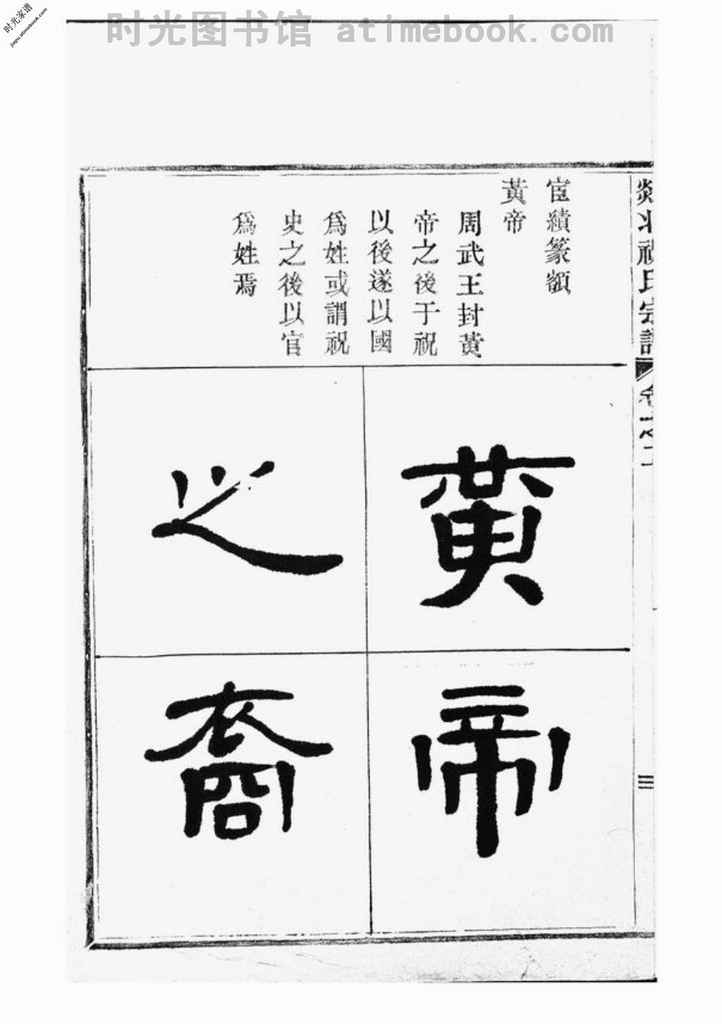 时光家谱
jiapu.atimebook.com
时光图书馆 atimebook.com
宦績篆額
黃帝
周武王封黃
帝之後于祝
以後遂以國
爲姓或謂祝
史之後以官
爲姓焉
黃帝
之裔
祝氏宗譜
卷之二
三